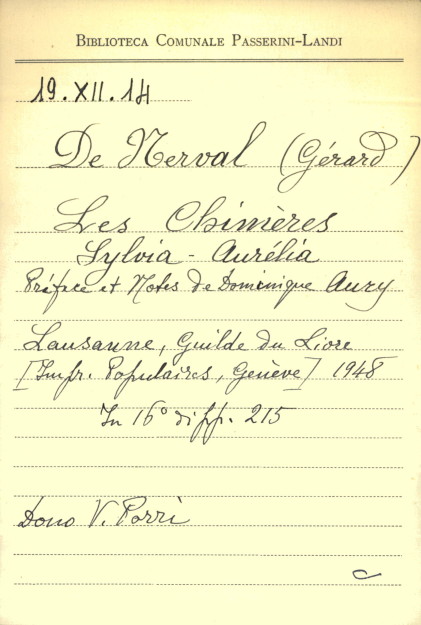 BIBLIOTECA COMUNALE PASSERINI-LANDI
19.XII.14
De Nerval (Gérard)
Les Chimères
Sylvia - Aurélia
Préface et Notes de Dominique Aury
Lausanne, Guilde du Livre
[Impr. Populaires, Genève] 1948
In 16° di pp. 215
Dono V. Porri
c